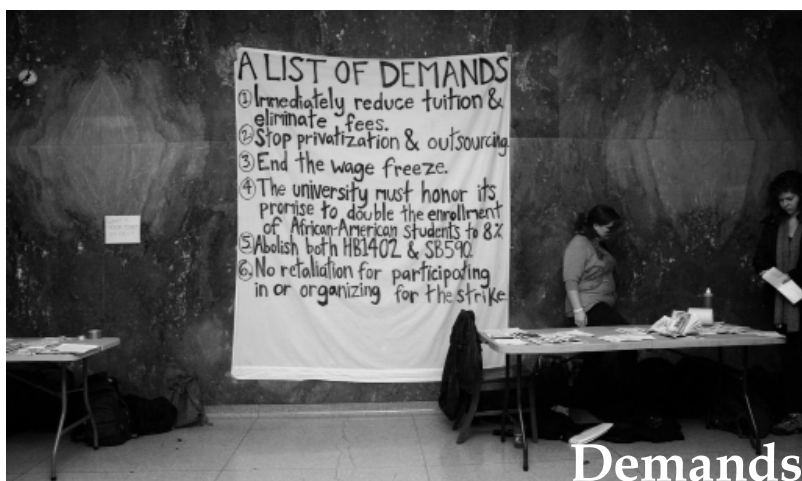 A LIST OF DEMANDS
① Immediately reduce tuition &
eliminate fees.
② Stop privatization & outsourcing
③ End the wage freeze.
④ The university must honor its
promise to double the enrollment
of African-American students to 8%
⑤ Abolish both HB1402 & SB590
⑥ No retaliation for participating
in or organizing for the strike
Demands